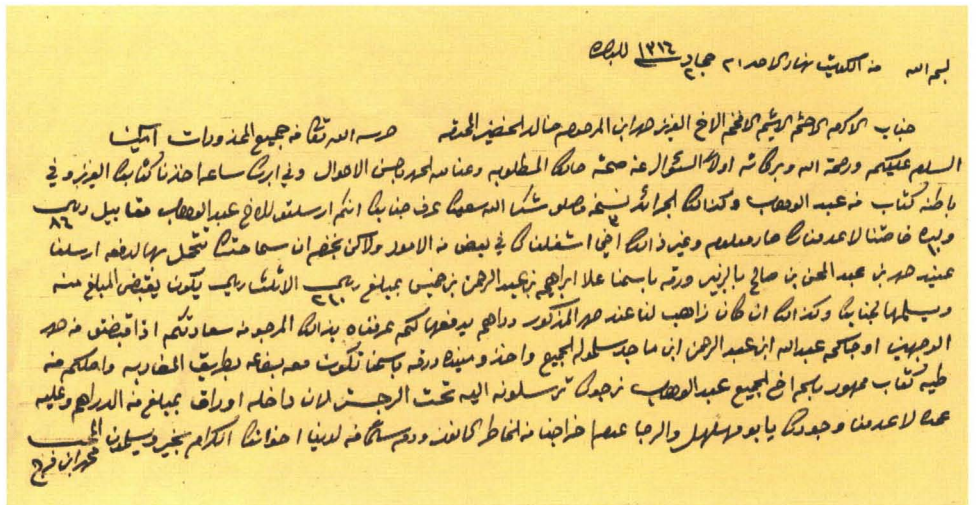 بسم الله من الكويت نهار الاحد ٢١ جماد ٢ ١٣١٦ للبصره
جناب الاكرم الاحشم الاشيم الافخم الاخ العزيز حمد ابن المرحوم خالد الخضير المحترم حرسه الله تعالى من جميع المحذورات آمين
السلم عليكم ورحمة الله وبركاته اولا السؤال عن صحة حالك المطلوبه وعنا لله الحمد باحسن الاحوال وفي ابرك ساعه اخذنا كتابك العزيز وفي
باطنه كتاب من عبد الوهاب وكذالك الجرائد نسخه ٣ وصلو شكر الله سعيك عرف جنابك انكم ارسلتو للاخ عبد الوهاب مقابيل ريال ٨٦
خاصتنا لا عدمناك صار معلوم وغير ذالك اخي اشغلناك في بعض من الامور ولاكن نبخص ان سماحتك تتحمل بهالدفعه ارسلنا
عبيد حمد بن عبد المحسن بن صالح ورقه باسمنا علا ابراهيم بن عبد الرحمن بن خنيس بمبلغ ريال ٢١٠ يكون يقتضى المبلغ منه
ويسلمها لجنابك وكذالك ان كان زاهب لنا عند حمد المذكور دراهم يدفعها لكم عرفناه بذالك المرجو من سعادتكم اذا قبضتو من حمد
الوجهين اوجكم عبد الله ابن عبد الرحمن ابن ماجد سلموله الجميع واخذو منه ورقه باسمنا تكون معه بضاعه بطريق المضاربه واصلكم من
طيه كتاب ممهور باسم اخ الجميع عبد الوهاب نرجوك ترسلونه اليه تحت الرجستر لان داخله اوراق بمبلغ من الدراهم وعليه
عمده لا عدمنا وجودك يابو مهلهل والرجا عدم اخراجنا من الخاطر العاطر ودم سالم من لدينا اخواننا الكرام بخير ويسلمون المحب
محمد ابن فرج